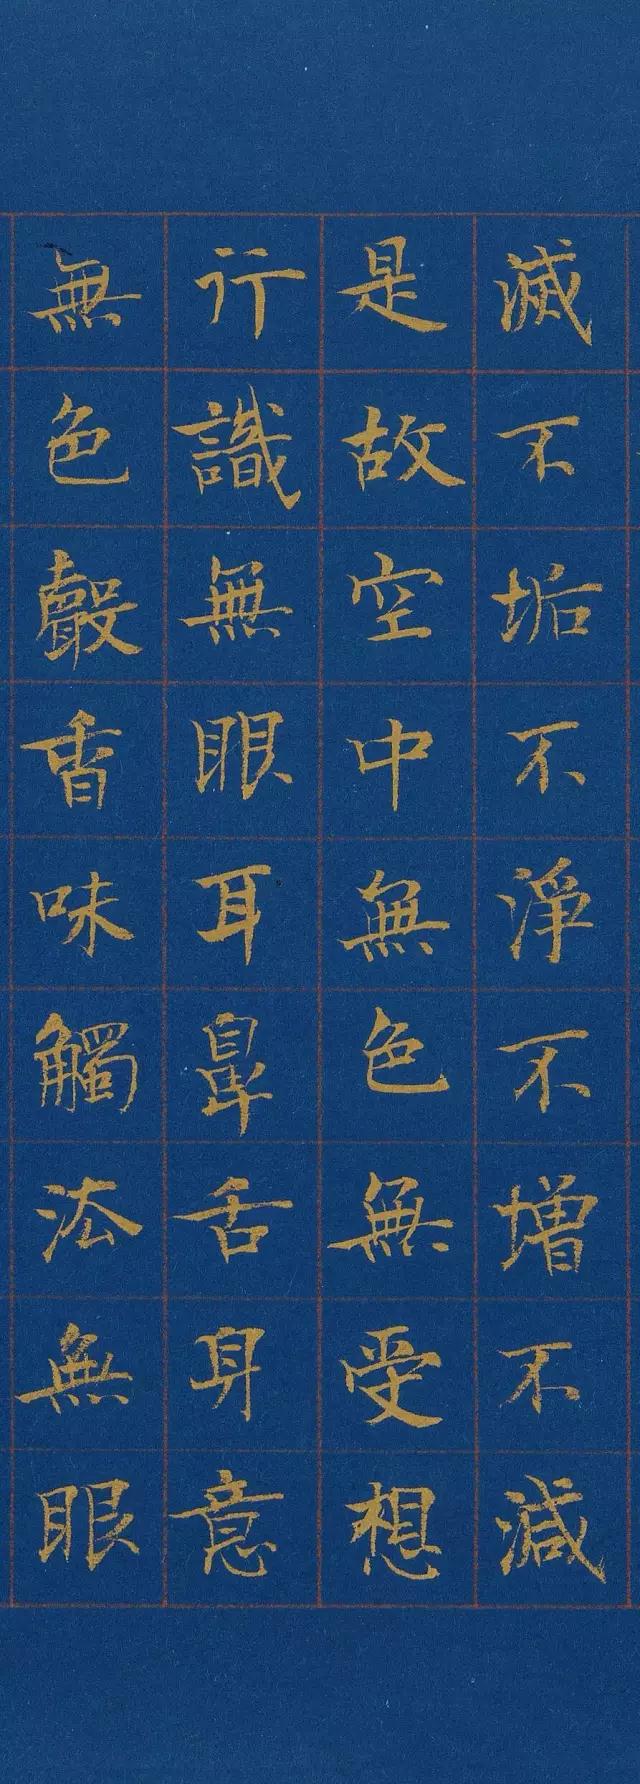 滅不垢不淨不增不減
是故空中無色無受想
行識無眼耳鼻舌身意
無色聲香味觸法無眼